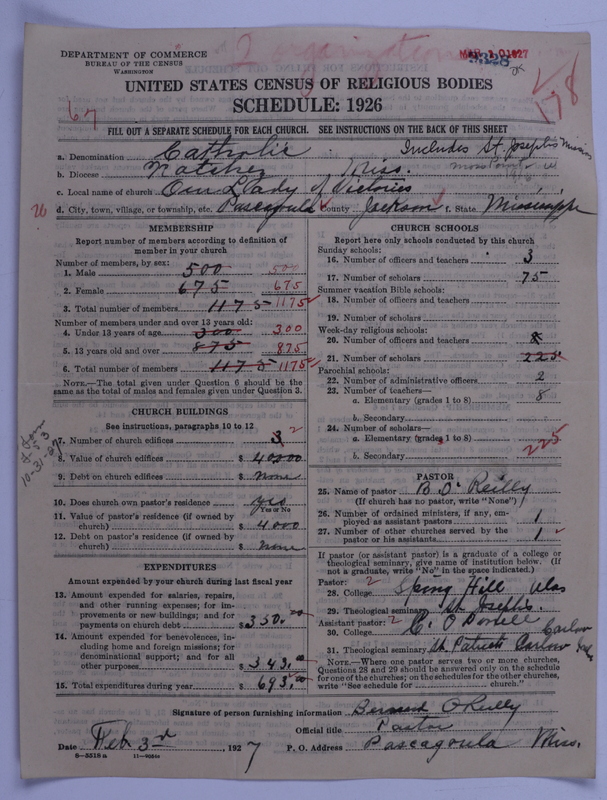 2 organizations
MAR 10 1927
DEPARTMENT OF COMMERCE
BUREAU OF THE CENSUS
WASHINGTON
UNITED STATES CENSUS OF RELIGIOUS BODIES
SCHEDULE: 1926
67
178
FILL OUT A SEPARATE SCHEDULE FOR EACH CHURCH. SEE INSTRUCTIONS ON THE BACK OF THIS SHEET
a. Denomination Catholic Includes St. Joseph's Mission
b. Diocese Natchez Miss. Moss Point
c. Local name of church Our Lady of Victories
26 d. City, town, village, or township, etc. Pascagoula e. County Jackson f. State Mississippi
MEMBERSHIP
Report number of members according to definition of
member in your church
Number of members, by sex:
1. Male 500 500
2. Female 675 675
3. Total number of members 1175 1175
Number of members under and over 13 years old:
4. Under 13 years of age 300 300
5. 13 years old and over 875 875
6. Total number of members 1175 1175
NOTE.—The total given under Question 6 should be the
same as the total of males and females given under Question 3.
CHURCH BUILDINGS
See instructions, paragraphs 10 to 12
7. Number of church edifices 3 2
8. Value of church edifices $ 40000
9. Debt on church edifices $ None
10-31-27
10. Does church own pastor's residence yes
Yes or No
11. Value of pastor's residence (if owned by
church) $ 4000
12. Debt on pastor's residence (if owned by
church) $ None
EXPENDITURES
Amount expended by your church during last fiscal year
13. Amount expended for salaries, repairs,
and other running expenses; for im-
provements or new buildings; and for
payments on church debt $ 350.00
14. Amount expended for benevolences, in-
cluding home and foreign missions; for
denominational support; and for all
other purposes $ 343.00
15. Total expenditures during year $ 693.00
CHURCH SCHOOLS
Report here only schools conducted by this church
Sunday schools:
16. Number of officers and teachers 3
17. Number of scholars 75
Summer vacation Bible schools:
18. Number of officers and teachers
19. Number of scholars
Week-day religious schools:
20. Number of officers and teachers 8
21. Number of scholars 225
Parochial schools:
22. Number of administrative officers 2
23. Number of teachers—
a. Elementary (grades 1 to 8) 8
b. Secondary
24. Number of scholars—
a. Elementary (grades 1 to 8) 225
b. Secondary
PASTOR
25. Name of pastor B O'Reilly
(If church has no pastor, write "None")
26. Number of ordained ministers, if any, em-
ployed as assistant pastors 1
27. Number of other churches served by the
pastor or his assistants 1
If pastor (or assistant pastor) is a graduate of a college or
theological seminary, give name of institution below. (If
not a graduate, write "No" in the space indicated.)
Pastor: 2
28. College Spring Hill Ala
29. Theological seminary St Joseph's.
Assistant pastor: 2
30. College Carlow
31. Theological seminary St Patricks Carlow
NOTE.—Where one pastor serves two or more churches,
Questions 28 and 29 should be answered only on the schedule
for one of the churches; on the schedules for the other churches,
write "See schedule for church."
Signature of person furnishing information Bernard O'Reilly
Official title Pastor
Date Feb 3rd 1927 P. O. Address Pascagoula Miss.
8—5518 a